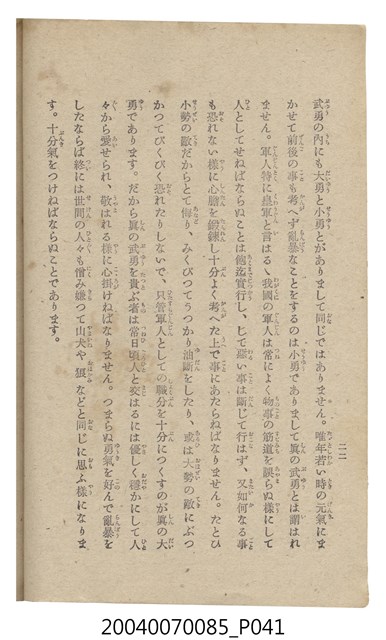 二二
武勇の內にも大勇と小勇とがありまして同じではありません。唯年若い時の元氣にま
かせて前後の事も考へず亂暴なことをするのは小勇でありまして眞の武勇とは謂はれ
ません。軍人特に皇軍と言はるゝ我國の軍人は常によく物事の筋道を誤らぬ樣にして
人としてせねばならぬことは飽迄實行し、して惡い事は斷じて行はず、又如何なる事
も恐れない樣に心膽を鍛錬し十分よく考へた上で事にあたらねばなりません。たとひ
小勢の敵だからとて侮り、みくびつてうつかり油斷をしたり、或は大勢の敵にぶつ
かつてびくびく恐れたりしないで、只管軍人としての職分を十分につくすのが眞の大
勇であります。だから眞の武勇を貴ぶ者は常日頃人と交はるには優しく穩かにして人
々から愛せられ、敬はれる樣に心掛けねばなりません。つまらぬ勇氣を好んで亂暴を
したならば終には世間の人々も憎み嫌つて山犬や狼などと同じに思ふ樣になりま
す。十分氣をつけねばならぬことであります。
20040070085_P041